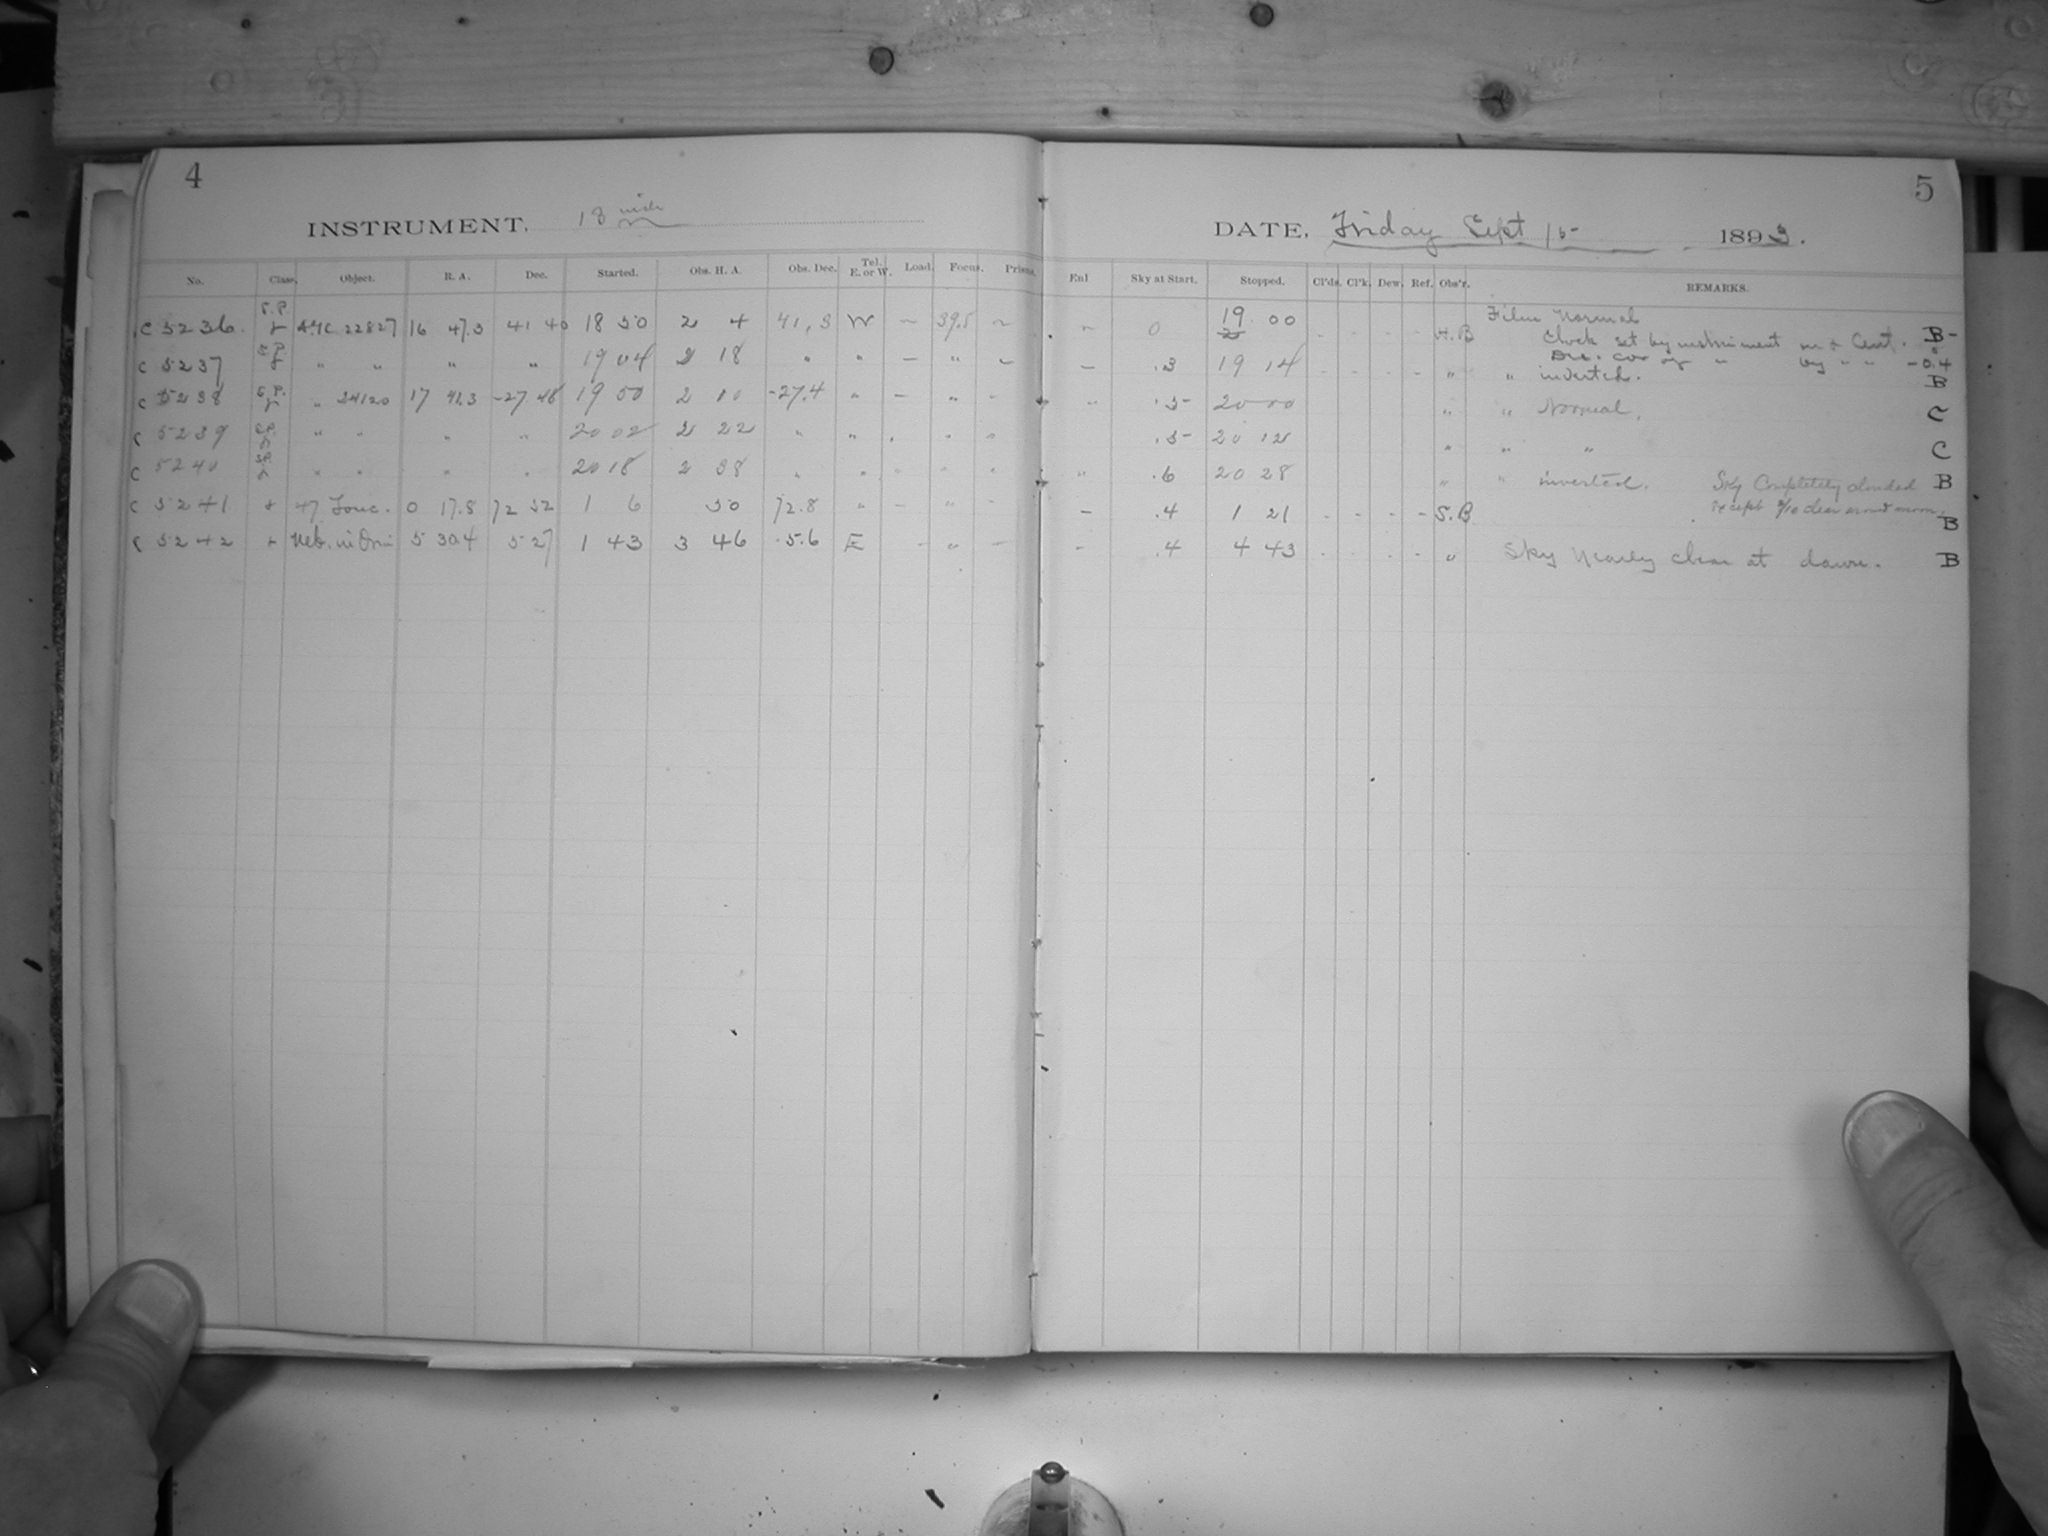 4
INSTRUMENT, 18 inch
No. Class. Object. R. A. Dec. Started. Obs. H. A. Obs. Dec. Tel. E. or W. Load. Focus. Prisms.
C 5236. S.P. AGC 22827 16 47.3 41 40 18 50 2 4 41.3 W – 39.5 –
C 5237 S.P. " " " " 19 04 2 18 " " – " –
C 5238 S.P. " 24120 17 41.3 -27 48 19 50 2 10 -27.4 " – " –
C 5239 S.P. " " " " 20 02 2 22 " " " "
C 5240 S.P. " " " " 20 18 2 38 " " " " "
C 5241 + 47 Touc. 0 17.8 72 52 1 6 50 72.8 " – " –
C 5242 + Neb. in Ori 5 30.4 5 27 1 43 3 46 -5.6 E – " –
5
DATE, Friday Sept 15 1893.
Enl Sky at Start. Stopped. Cl'ds. Cl'k. Dew. Ref. Obs'r. REMARKS.
– 0 19 00 - - - - H.B Film Normal
Clock set by instrument Cent. B-
– .3 19 14 - - - - " " inverted. -0.4 B
" .5 20 00 " " Normal. C
.5 20 12 " " " C
" .6 20 28 " " inverted. Sky Completely clouded B
except clear around moon.
– .4 1 21 - - - - S.B B
- .4 4 43 - - - - " Sky nearly clear at dawn. B